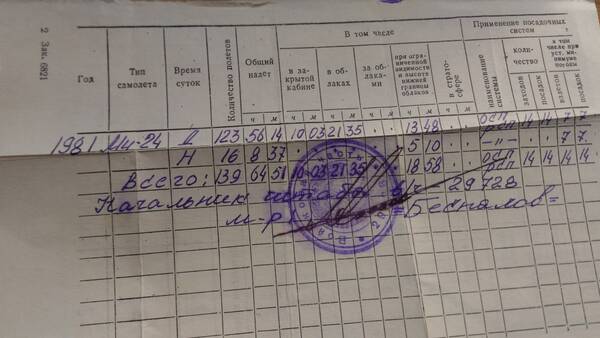 2 Зак. 6821
Год
Тип самолета
Время суток
Количество полетов
Общий налет
В том числе
в закрытой кабине
в облаках
за облаками
при ограниченной видимости и высоте нижней границы облаков
в стратосфере
Применение посадочных систем
наименование системы
количество
в том числе при уст. минимуме погоды
заходов
посадок
взлетов
посадок
ч м ч м ч м ч м ч м ч м
1981 Ми-24 Д 123 56 14 10 03 21 35 13 48 осп рсп 14 14 7 7
Н 16 8 37 5 10 -"- 7 7
Всего: 139 64 51 10 03 21 35 18 58 осп 14 14 14 14
Начальник штаба в/ч 29728
м-р =Беспалов=